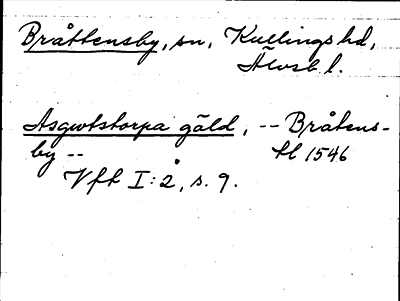 Bråttensby, sn, Kullings hd,
Älvsb l.
Asgwtstorpa gäld, -- Bråtens-
by -- tl 1546
Vft I:2, s. 9.